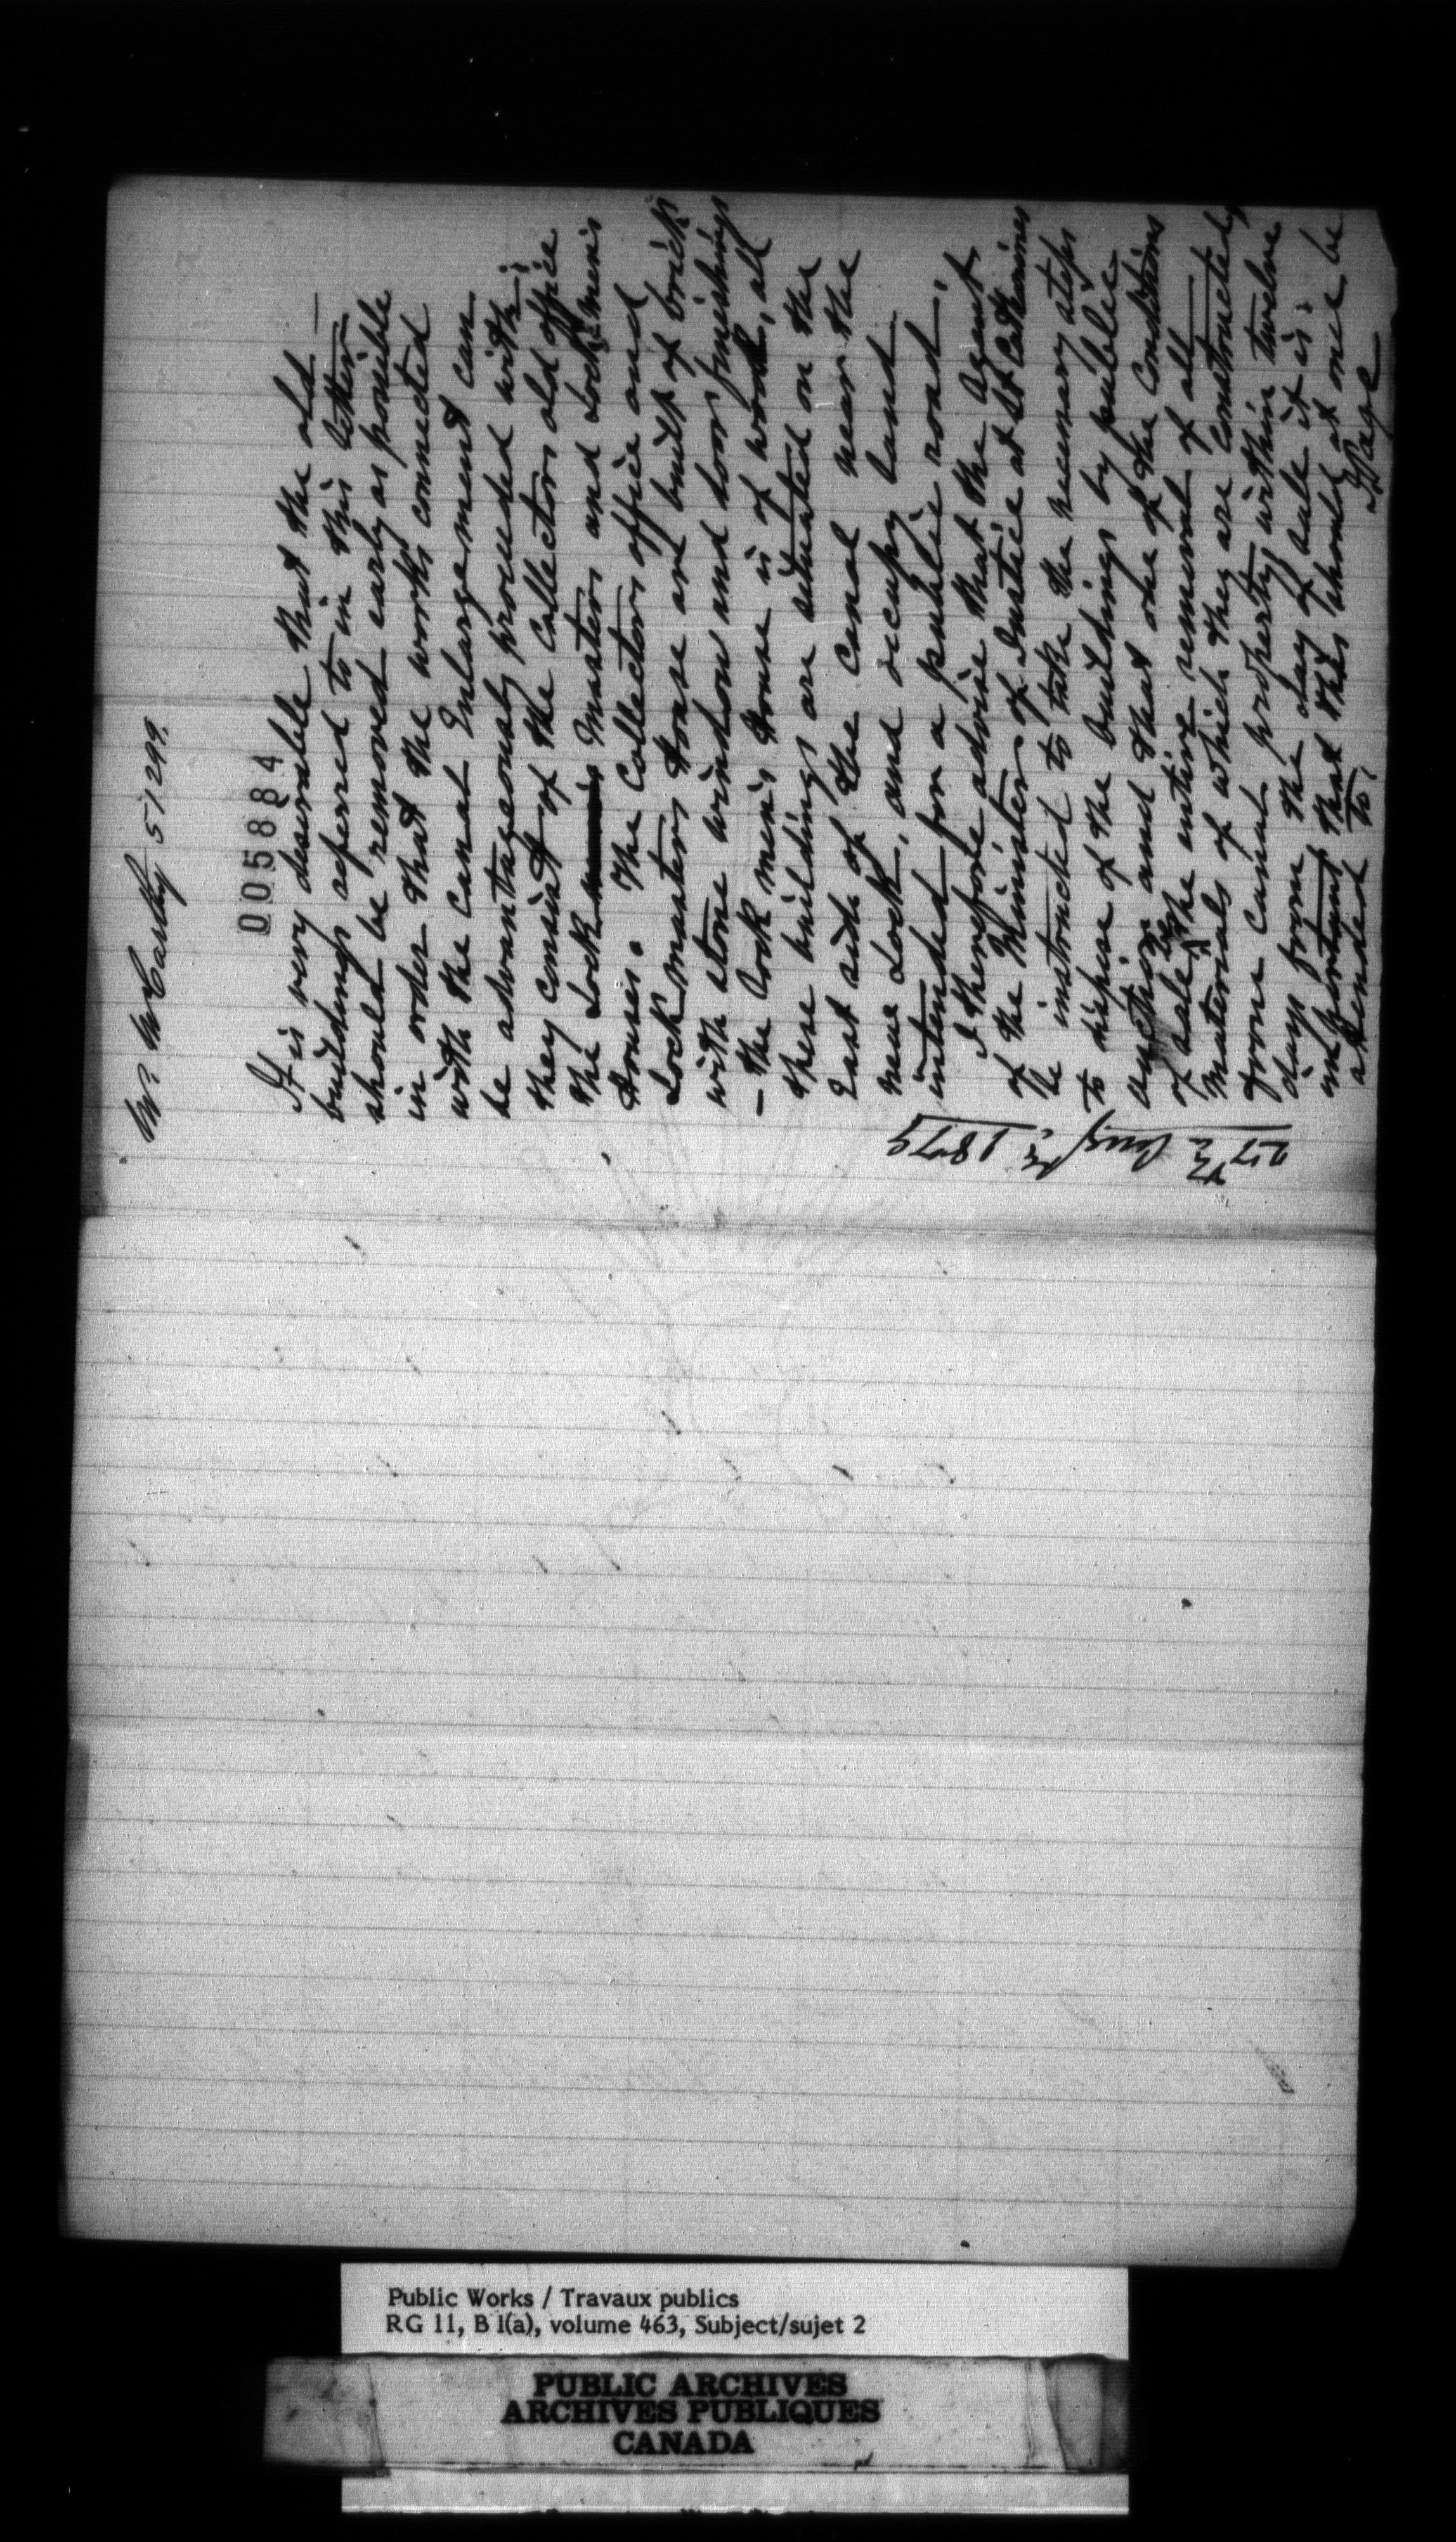 Mr McCarthy 51299
005884
It is very desirable that the old
buildings referred to in this letter
should be removed early as possible
in order that the works connected
with the Canal Enlargement can
be advantageously proceeded with;
they consist of the Collectors old office
the Lock Masters and Lock Men's
Houses. The Collectors office and
Lock Masters House are built of brick
with stone window and door finishings
- the Lock men's House is of wood, all
these buildings are situated on the
East side of the Canal near the
new Lock, and occupy land
intended for a public road.
I therefore advise that the Agent
of the Minister of Justice at St Catharines
be instructed to take the necessary steps
to dispose of the buildings by public
auction and that one of the Conditions
of sale be the entire removal of all
Materials of which they are Constructed
from Canal property within twelve
days from the day of sale it is
important that this should at once be
attended to.
J Page
27th Augt 1879
Public Works / Travaux publics
RG 11, B 1(a), volume 463, Subject/sujet 2
PUBLIC ARCHIVES
ARCHIVES PUBLIQUES
CANADA